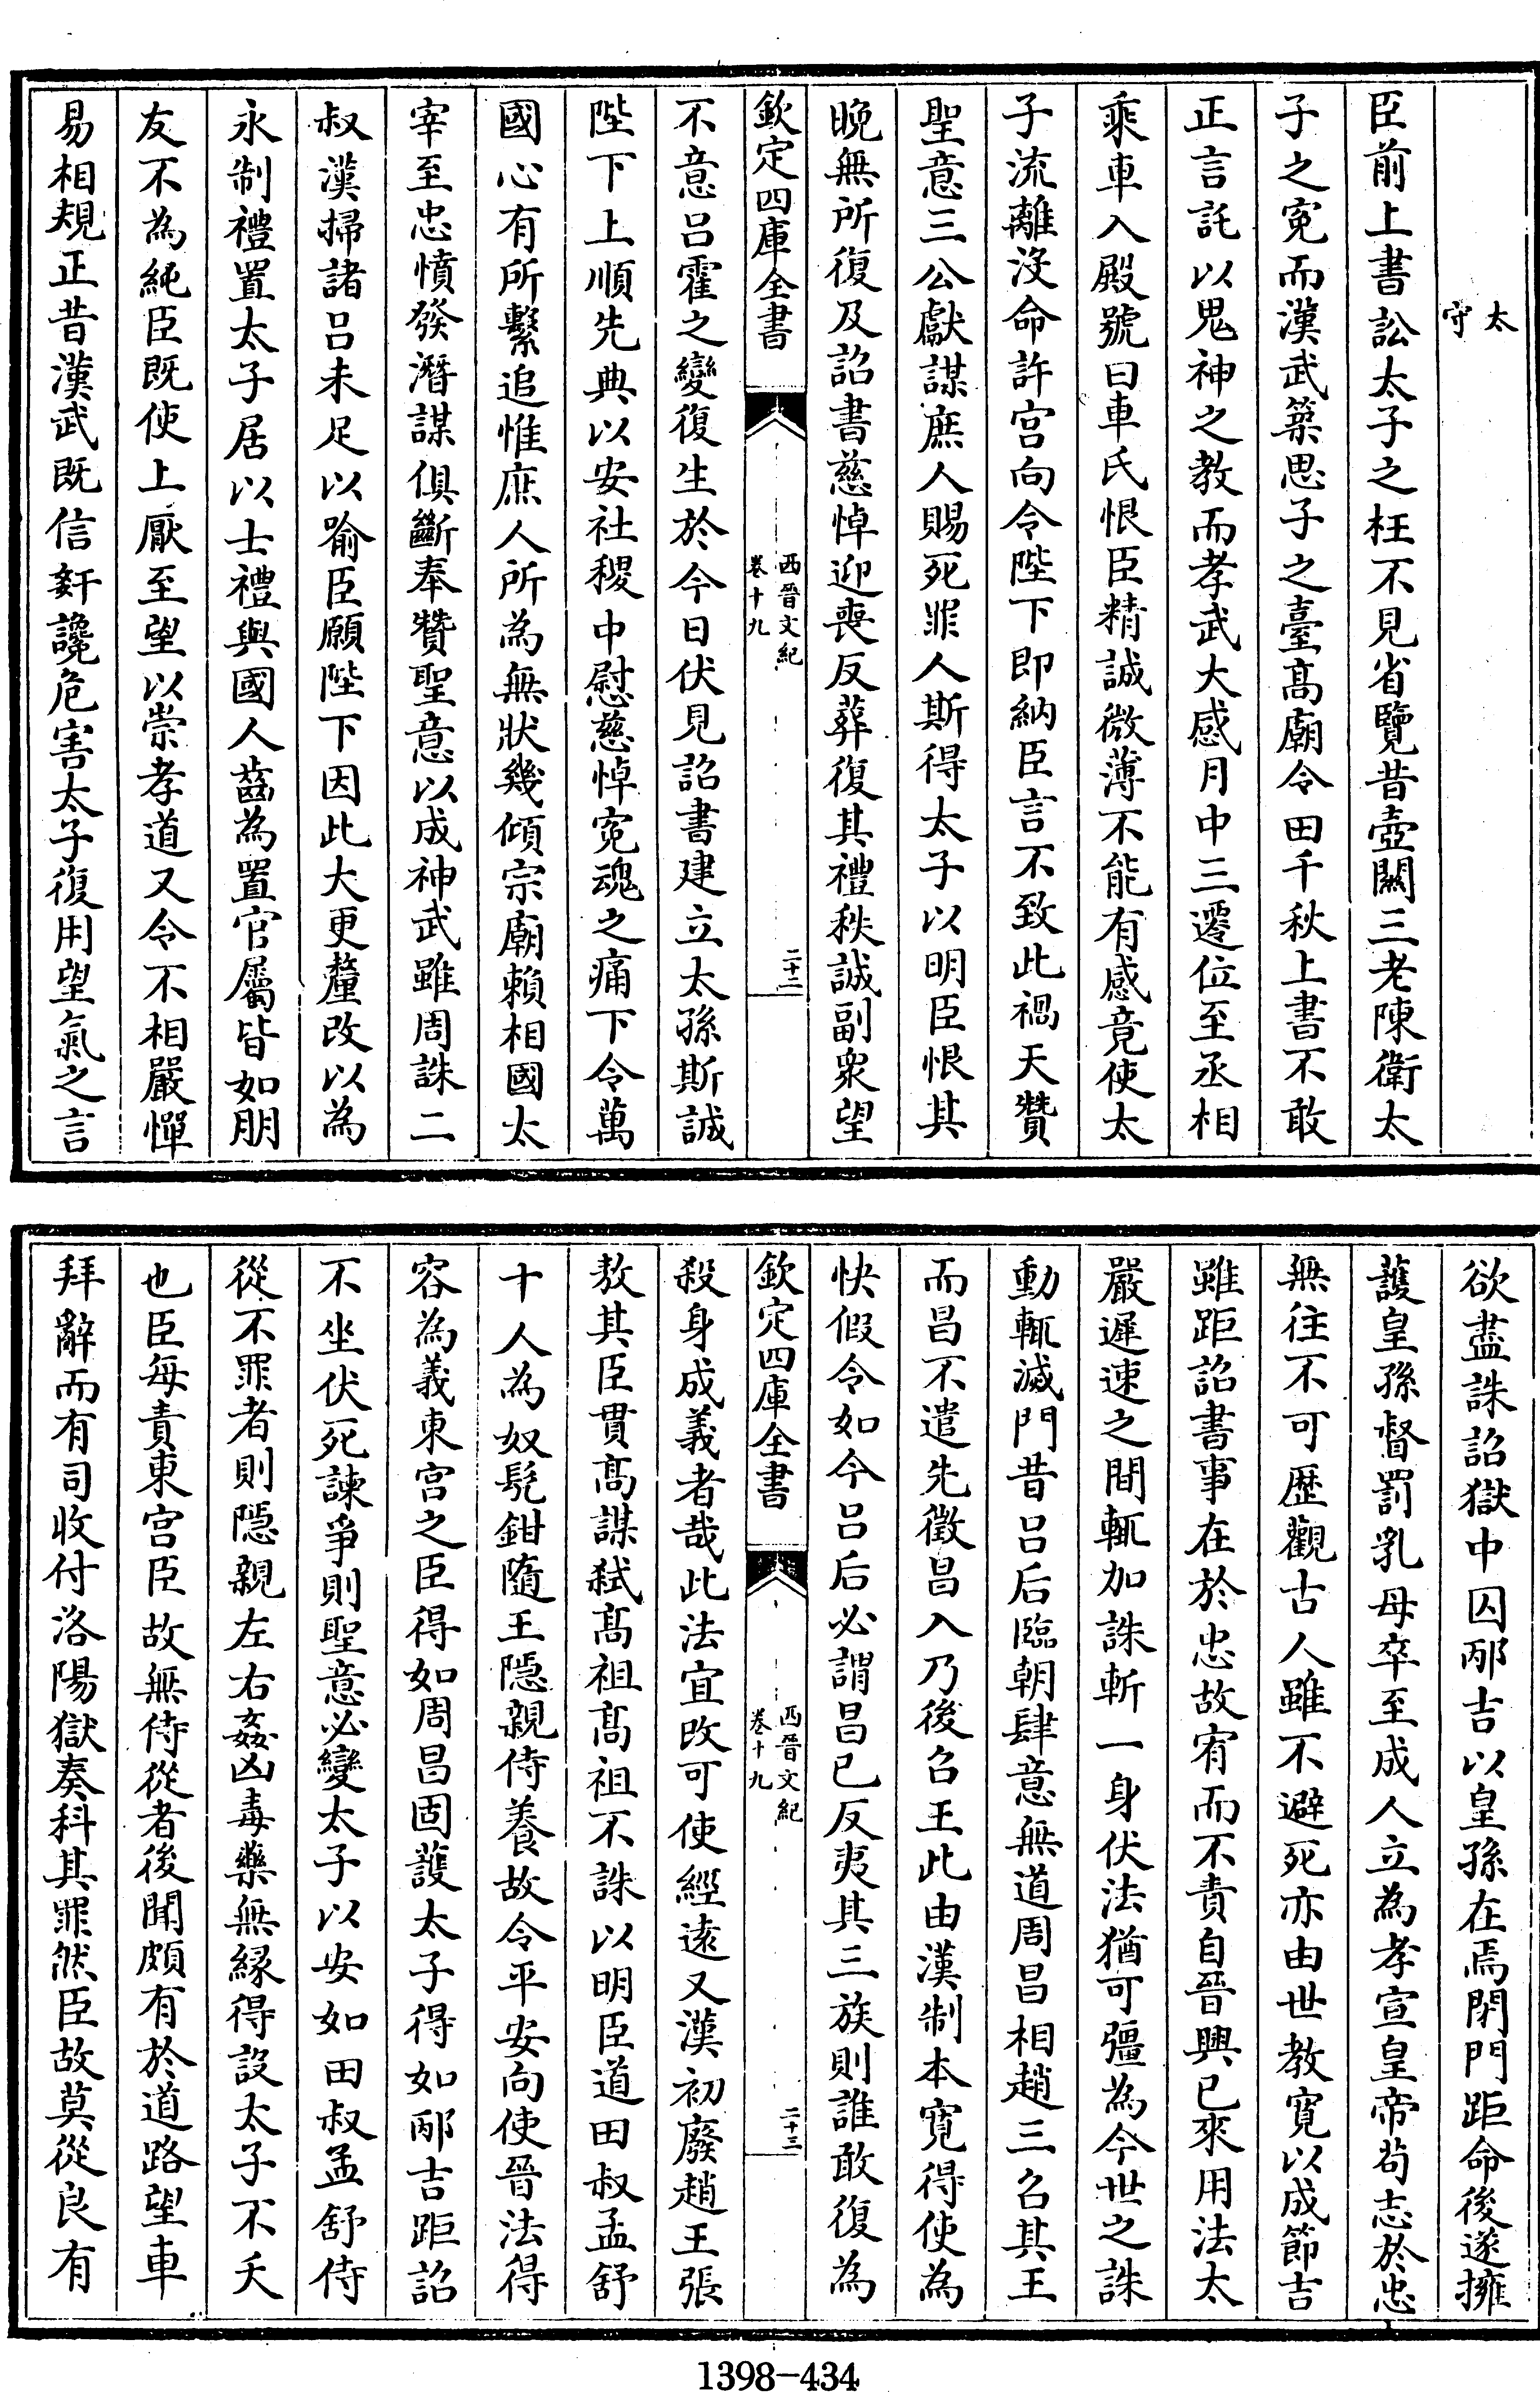 太
守
臣前上書訟太子之枉不見省覽昔壺關三老陳衛太
子之寃而漢武築思子之臺髙廟令田千秋上書不敢
正言託以鬼神之教而孝武大感月中三遷位至丞相
乘車入殿號曰車氏恨臣精誠微薄不能有感竟使太
子流離沒命許宫向令陛下即納臣言不致此禍天贊
聖意三公獻謀庶人賜死罪人斯得太子以明臣恨其
晚無所復及詔書慈悼迎喪反葬復其禮秩誠副衆望
欽定四庫全書
西晉文紀
卷十九
二十二
不意吕霍之變復生於今日伏見詔書建立太孫斯誠
陛下上順先典以安社稷中慰慈悼寃魂之痛下令萬
國心有所繫追惟庶人所為無狀幾傾宗廟賴相國太
宰至忠憤發潛謀俱斷奉贊聖意以成神武雖周誅二
叔漢掃諸吕未足以喻臣願陛下因此大更釐改以為
永制禮置太子居以士禮與國人齒為置官屬皆如朋
友不為純臣既使上厭至望以崇孝道又令不相嚴憚
易相規正昔漢武既信奸讒危害太子復用望氣之言
欲盡誅詔獄中囚邴吉以皇孫在焉閉門距命後遂擁
䕶皇孫督罰乳母卒至成人立為孝宣皇帝茍志於忠
無往不可歴觀古人雖不避死亦由世教寛以成節吉
雖距詔書事在於忠故宥而不責自晉興已來用法太
嚴遲速之間輒加誅斬一身伏法猶可彊為今世之誅
動輒滅門昔吕后臨朝肆意無道周昌相趙三召其王
而昌不遣先徵昌入乃後召王此由漢制本寛得使為
快假令如今吕后必謂昌已反夷其三族則誰敢復為
欽定四庫全書
西晉文紀
卷十九
二十三
殺身成義者哉此法宜改可使經遠又漢初廢趙王張
敖其臣貫髙謀弑髙祖髙祖不誅以明臣道田叔孟舒
十人為奴髠鉗隨王隠親侍養故令平安向使晉法得
容為義東宫之臣得如周昌固䕶太子得如邴吉距詔
不坐伏死諫爭則聖意必變太子以安如田叔孟舒侍
從不罪者則隠親左右姦凶毒藥無縁得設太子不夭
也臣每責東宫臣故無侍從者後聞頗有於道路望車
拜辭而有司收付洛陽獄奏科其罪然臣故莫從良有
1398-434